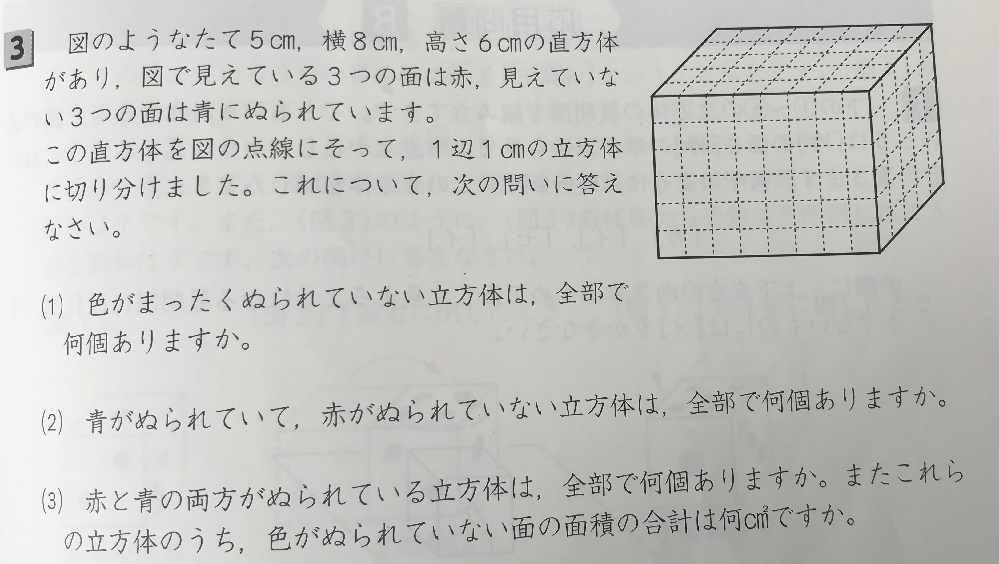 3 図のようなたて5cm，横8cm，高さ6cmの直方体
があり，図で見えている3つの面は赤，見えていな
い3つの面は青にぬられています。
この直方体を図の点線にそって，1辺1cmの立方体
に切り分けました。これについて，次の問いに答え
なさい。
(1) 色がまったくぬられていない立方体は，全部で
何個ありますか。
(2) 青がぬられていて，赤がぬられていない立方体は，全部で何個ありますか。
(3) 赤と青の両方がぬられている立方体は，全部で何個ありますか。またこれら
の立方体のうち，色がぬられていない面の面積の合計は何cm²ですか。